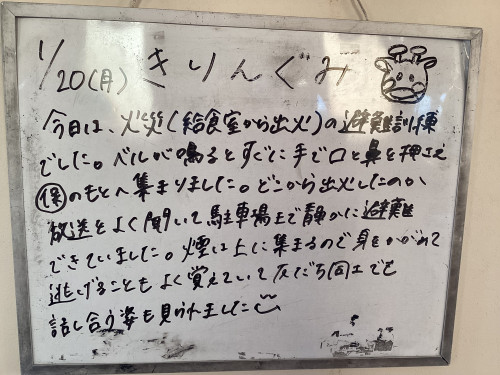 1/20(月) きりんぐみ
今日は、火災(給食室から出火)の避難訓練
でした。ベルが鳴るとすぐに手で口と鼻を押え
保のもとへ集まりました。どこから出火したのか
放送をよく聞いて駐車場まで静かに避難
できていました。煙は上に集まるので身をかがめて
逃げることもよく覚えていて友だち同士でも
話し合う姿も見られました